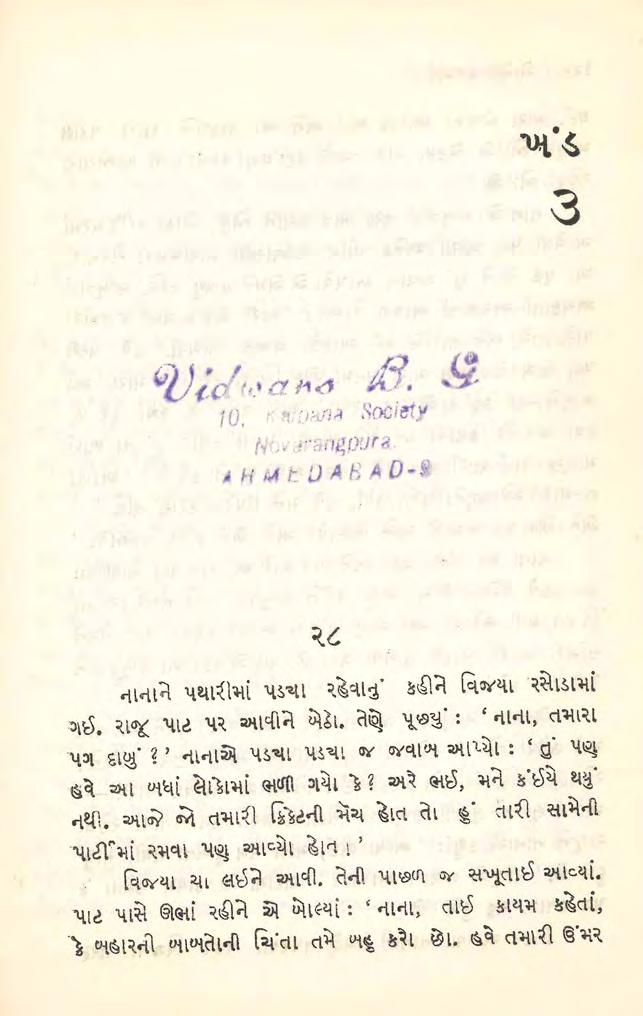 ખંડ
૩
Vidwans B. G
10, Kalpana Society
Navarangpura.
AHMEDABAD-9
૨૮
નાનાને પથારીમાં પડ્યા રહેવાનું કહીને વિજયા રસોડામાં
ગઈ. રાજૂ પાટ પર આવીને બેઠો. તેણે પૂછ્યું : ‘નાના, તમારા
પગ દાબું ?’ નાનાએ પડ્યા પડ્યા જ જવાબ આપ્યો : ‘તું પણ
હવે આ બધાં લોકોમાં ભળી ગયો કે? અરે ભઈ, મને કંઈયે થયું
નથી. આજે જો તમારી ક્રિકેટની મૅચ હોત તો હું તારી સામેની
પાર્ટીમાં રમવા પણ આવ્યો હોત!’
વિજયા ચા લઈને આવી. તેની પાછળ જ સખૂતાઈ આવ્યાં.
પાટ પાસે ઊભાં રહીને એ બોલ્યાં : ‘નાના, તાઈ કાયમ કહેતાં,
કે બહારની બાબતોની ચિંતા તમે બહુ કરો છો. હવે તમારી ઉંમર